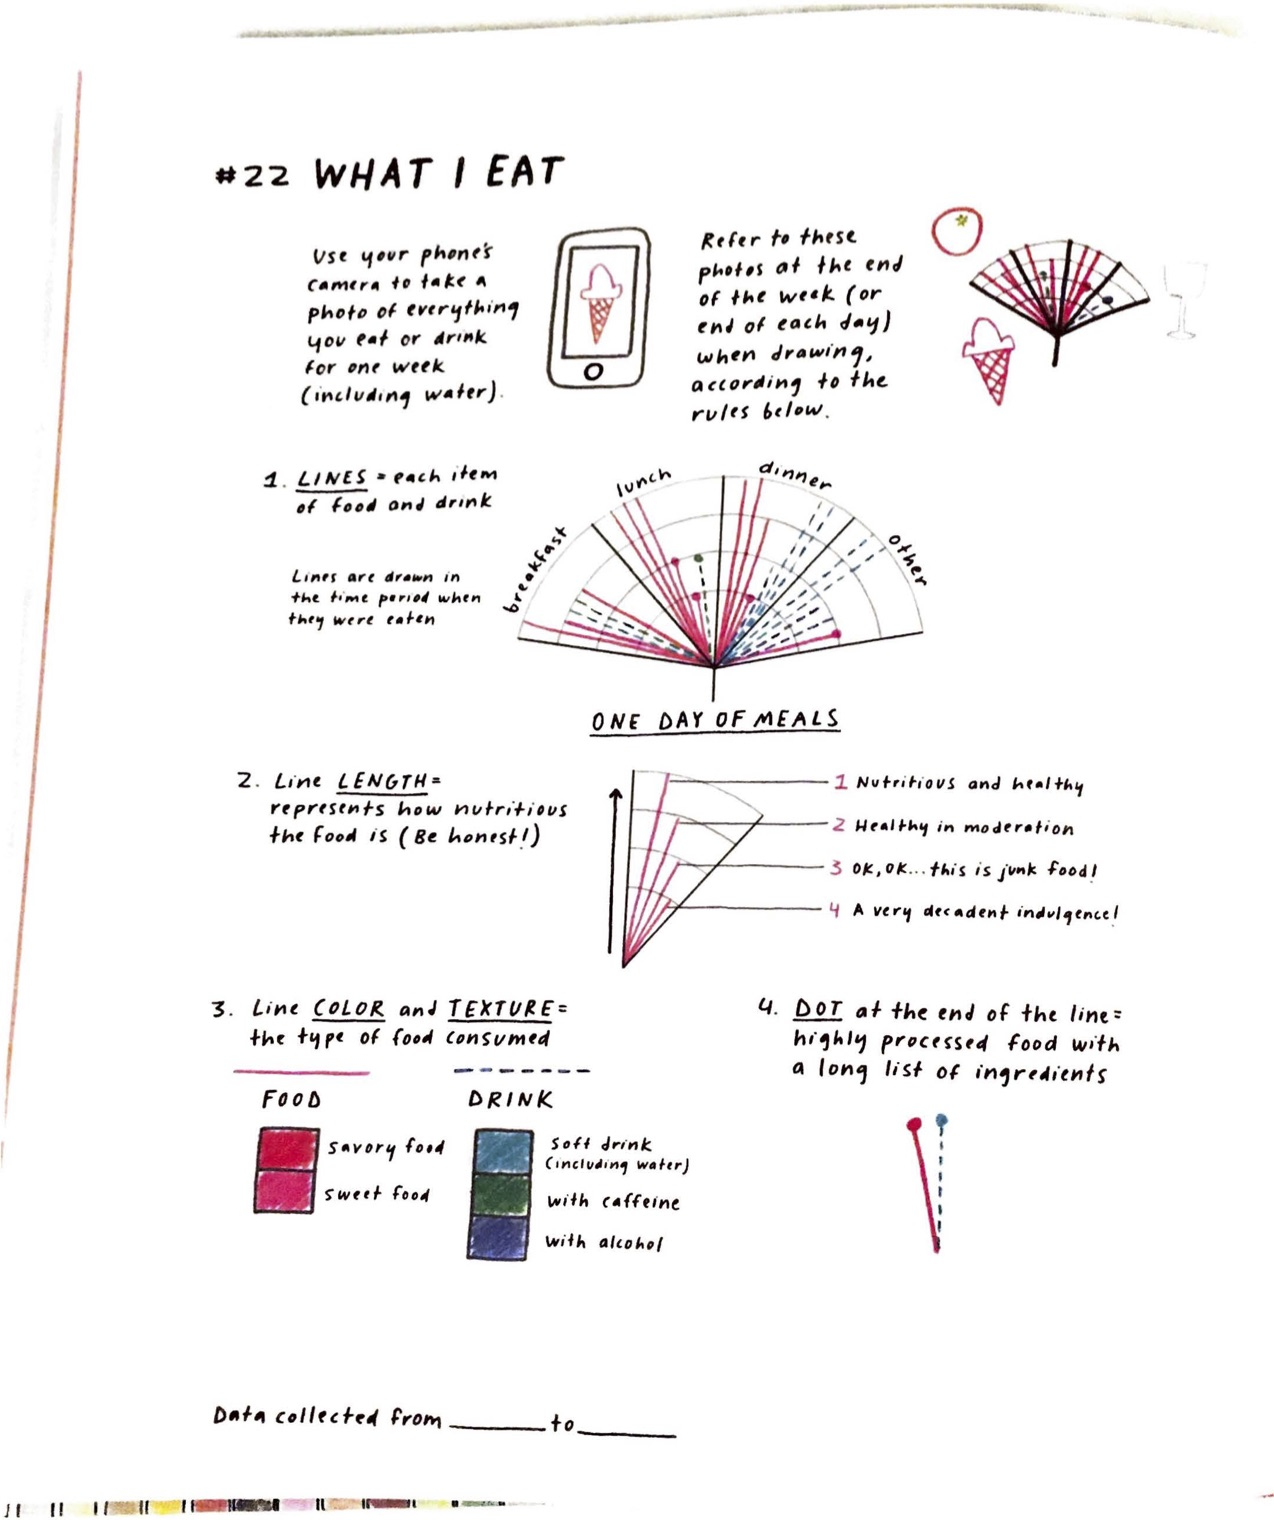 #22 WHAT I EAT
Use your phone's
camera to take a
photo of everything
you eat or drink
for one week
(including water).
Refer to these
photos at the end
of the week (or
end of each day)
when drawing,
according to the
rules below.
1. LINES = each item
of food and drink
Lines are drawn in
the time period when
they were eaten
breakfast
lunch
dinner
other
ONE DAY OF MEALS
2. Line LENGTH =
represents how nutritious
the food is (Be honest!)
1 Nutritious and healthy
2 Healthy in moderation
3 OK, OK... this is junk food!
4 A very decadent indulgence!
3. Line COLOR and TEXTURE =
the type of food consumed
FOOD
savory food
sweet food
DRINK
soft drink
(including water)
with caffeine
with alcohol
4. DOT at the end of the line =
highly processed food with
a long list of ingredients
Data collected from ________ to ________